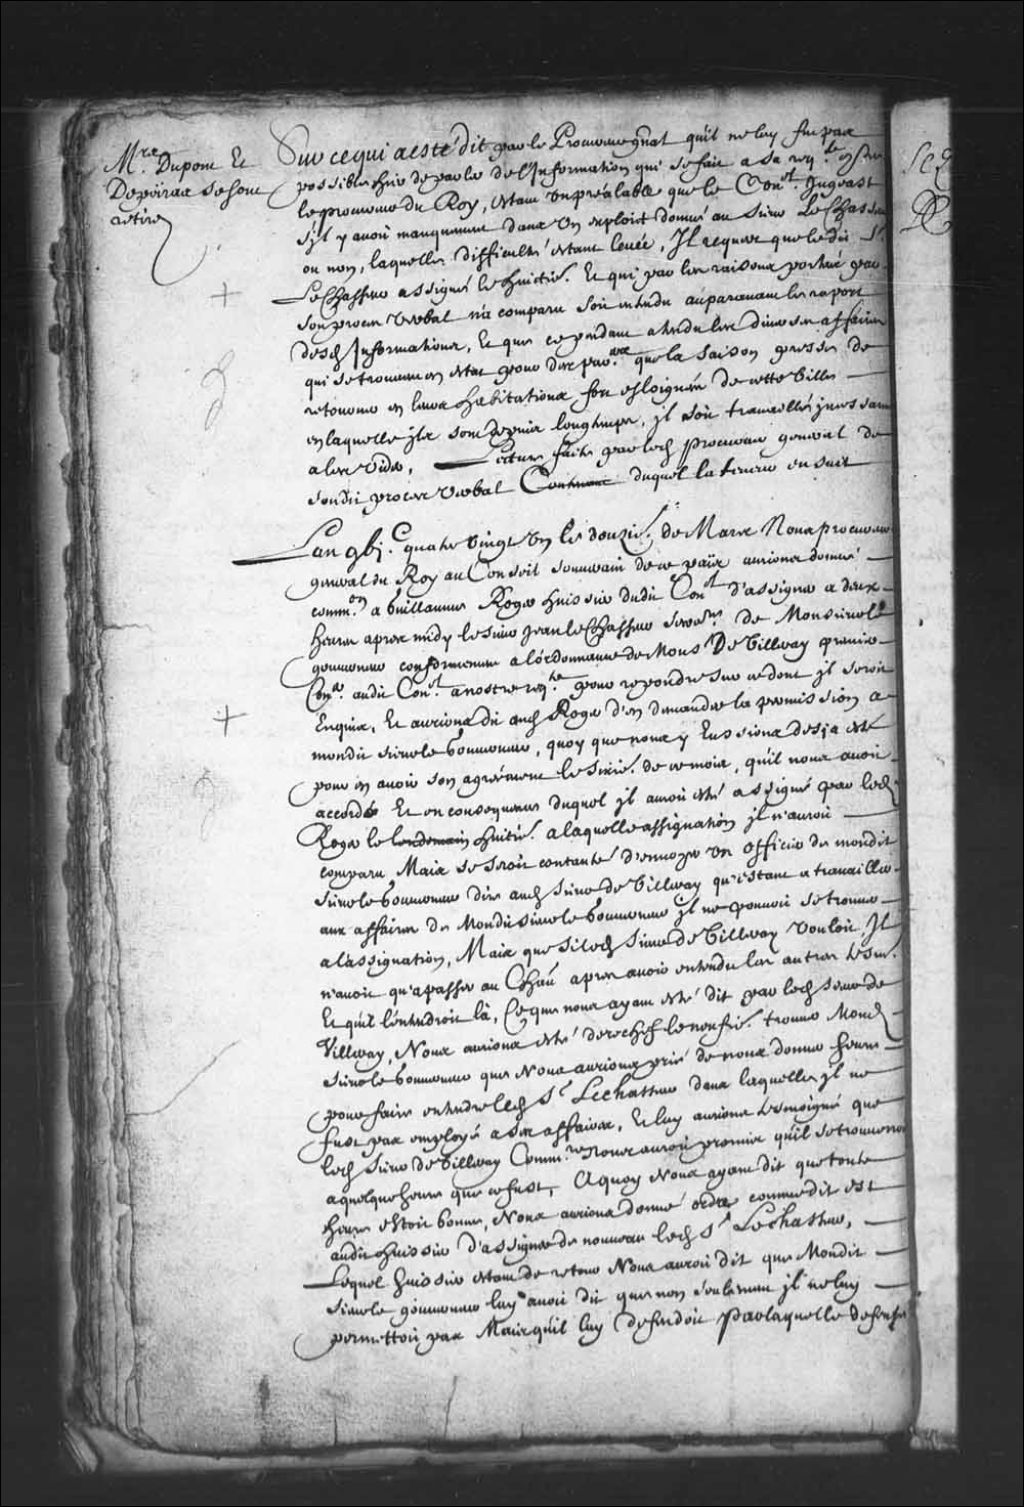 Mrs. Dupont et
Depeiras se sont
retirés
Sur ce qui a esté dit par le Procureur gnãl quil ne luy fut pas
possible hier de parler de l'Information qui se fait a sa reqte
le procureur du Roy, estant un prealable que le Conseil Jugeast
s'il y avoit manquement dans un exploit donné au sieur LeChasseur
ou non, laquelle difficulté estant levée, Il requiert que ledit Sr.
LeChasseur assigné le huictie. Et qui par les raisons portées par
son procez verbal n'a comparu soit entendu auparavant le raport
desd Informations, Et que cependant attendu les diverses affaires
qui se trouvent en estat pour des par. que la saison presse de
retourner en leurs habitations fort esloignées de cette Ville
en laquelle ils sont depuis longtemps, il soit travaillé incessamment
a les vider, Lecture faite par led procureur general de
sondit procez verbal duquel la teneur ensuit
L'an gbjc. quatre vingt un le douzie. de Mars Nous procureur
general du Roy au Conseil souverain de ce païs aurions donné
common a Guillaume Roger huissier dudit Conl d'assigner a deux
heures apres midy le sieur Jean leChasseur secre. de Monsieur le
gouverneur conformement a l'ordonnance de Mons De Villeray premier
Coner. audit Conl. a nostre reqte pour repondre sur ce dont il seroit
Enquis, Et aurions dit aud Roger d'en demander la permission a
mondit sieur le Gouverneur, quoy que nous y Eussions desja esté
pour en avoir son agréement le sixie. de ce mois, qu'il nous avoit
accordé Et en consequence duquel il auroit esté assigné par led
Roger le lendemain huitie. a laquelle assignation il n'auroit
comparu Mais se seroit contanté d'envoyer un officier de mondit
sieur le Gouverneur dire aud sieur de Villeray qu'estant a travailler
aux affaires de Mondit sieur le Gouverneur il ne pouvoit se trouver
a l'assignation, Mais que si led sieur de Villeray vouloit Il
n'avoit qu'a passer au Chãu apres avoir entendu les autres tesm.
Et qu'il l'entendroit là, Ce que nous ayant esté dit par led sieur de
Villeray, Nous aurions esté derechef le neufie. trouver Mond
sieur le Gouverneur que Nous aurions prié de nous donner heure
pour faire entendre led Sr. Lechasseur dans laquelle il ne
fust pas employé a ses affaires, Et luy aurions tesmoigné que
led sieur de Villeray Commre Nous auroit promis qu'il se trouveroit
a quelque heure que ce fust, A quoy Nous ayant dit que toute
heure estoit bonne, Nous aurions donné ordre comme dit est
audit huissier d'assigner de nouveau led Sr Lechasseur,
Lequel huissier estant de retour Nous auroit dit que Mondit
sieur le gouverneur luy avoit dit que non seulement il ne luy
permettoit pas Mais qu'il luy defendoit Par laquelle defense